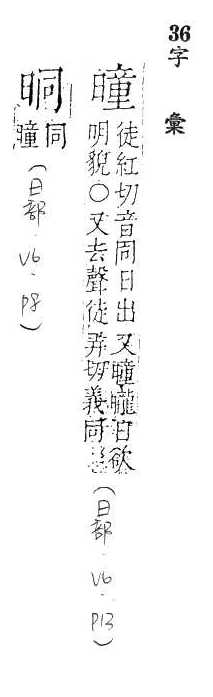 36字 彙
曈 徒紅切音同日出又曈曨日欲
明貌○又去聲徒弄切義同
(日部.V6.P13)
晍 同
曈
(日部.V6.P8)